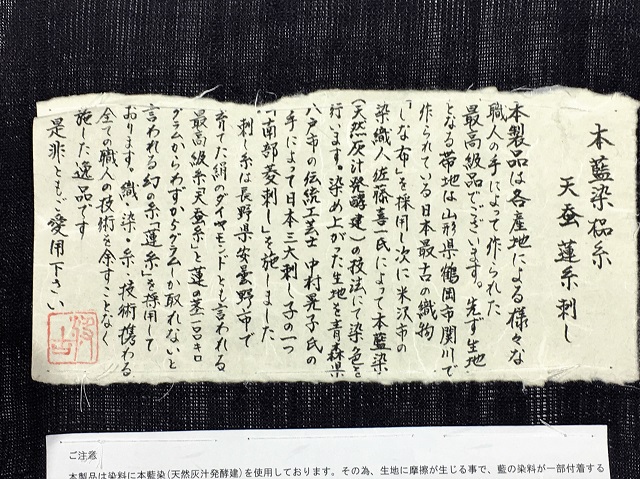 本藍染榀糸
天蚕蓮糸刺し
本製品は各産地による様々な
職人の手によって作られた
最高級品でございます。先ず生地
となる帯地は山形県鶴岡市関川で
作られている日本最古の織物
「しな布」を採用し次に米沢市の
染織人佐藤喜一氏によって本藍染
(天然灰汁発酵建)の技法にて染色を
行います。染め上がた生地を青森県
八戸市の伝統工芸士中村晃子氏の
手によって日本三大刺し子の一つ
「南部菱刺し」を施しました
刺し糸は長野県安曇野市で
育てた絹のダイヤモンドとも言われる
最高級糸天蚕糸」と蓮の茎一二〇キロ
グラムからわずか グラムしか取れないと
言われる幻の糸「蓮糸」を採用して
おります。織・染・糸・技術携わる
全ての職人の技術を余すことなく
施した逸品です
是非ともご愛用下さい
ご注意
本製品は染料に本藍染(天然灰汁発酵建)を使用しております。その為、生地に摩擦が生じる事で、藍の染料が一部付着する